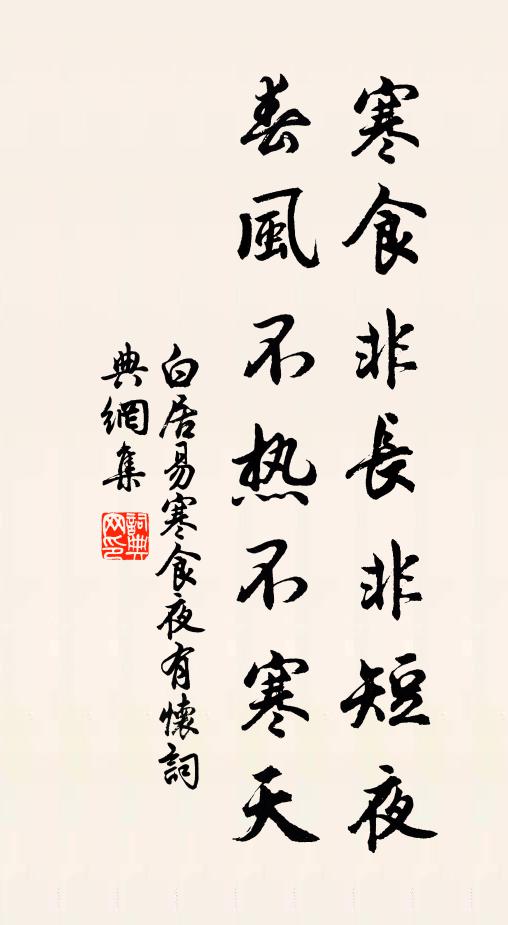 寒食非長非短夜
春風不热不寒天
白居易寒食夜有懷詞
典網集
詞典網印